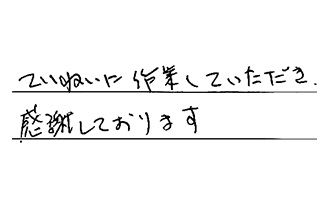 ていねいに作業していただき.
感謝しております